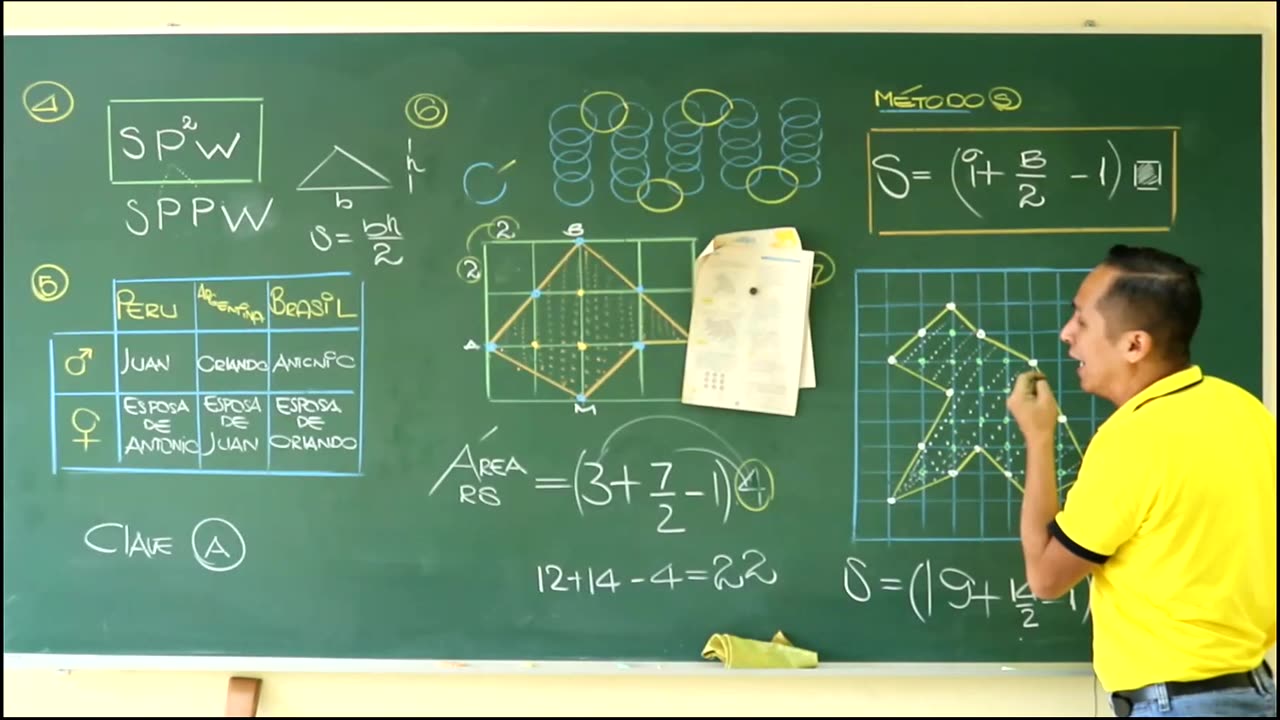 4
SP²W
SPPW
h
b
S = bh/2
5
PERU ARGENTINA BRASIL
♂ JUAN ORLANDO ANTONIO
♀ ESPOSA DE ANTONIO ESPOSA DE JUAN ESPOSA DE ORLANDO
CLAVE A
6
2
2
B
A
M
ÁREA RS = (3 + 7/2 - 1) 4
12 + 14 - 4 = 22
MÉTODO S
S = (i + B/2 - 1)
S = (19 + 14/2 - 1)